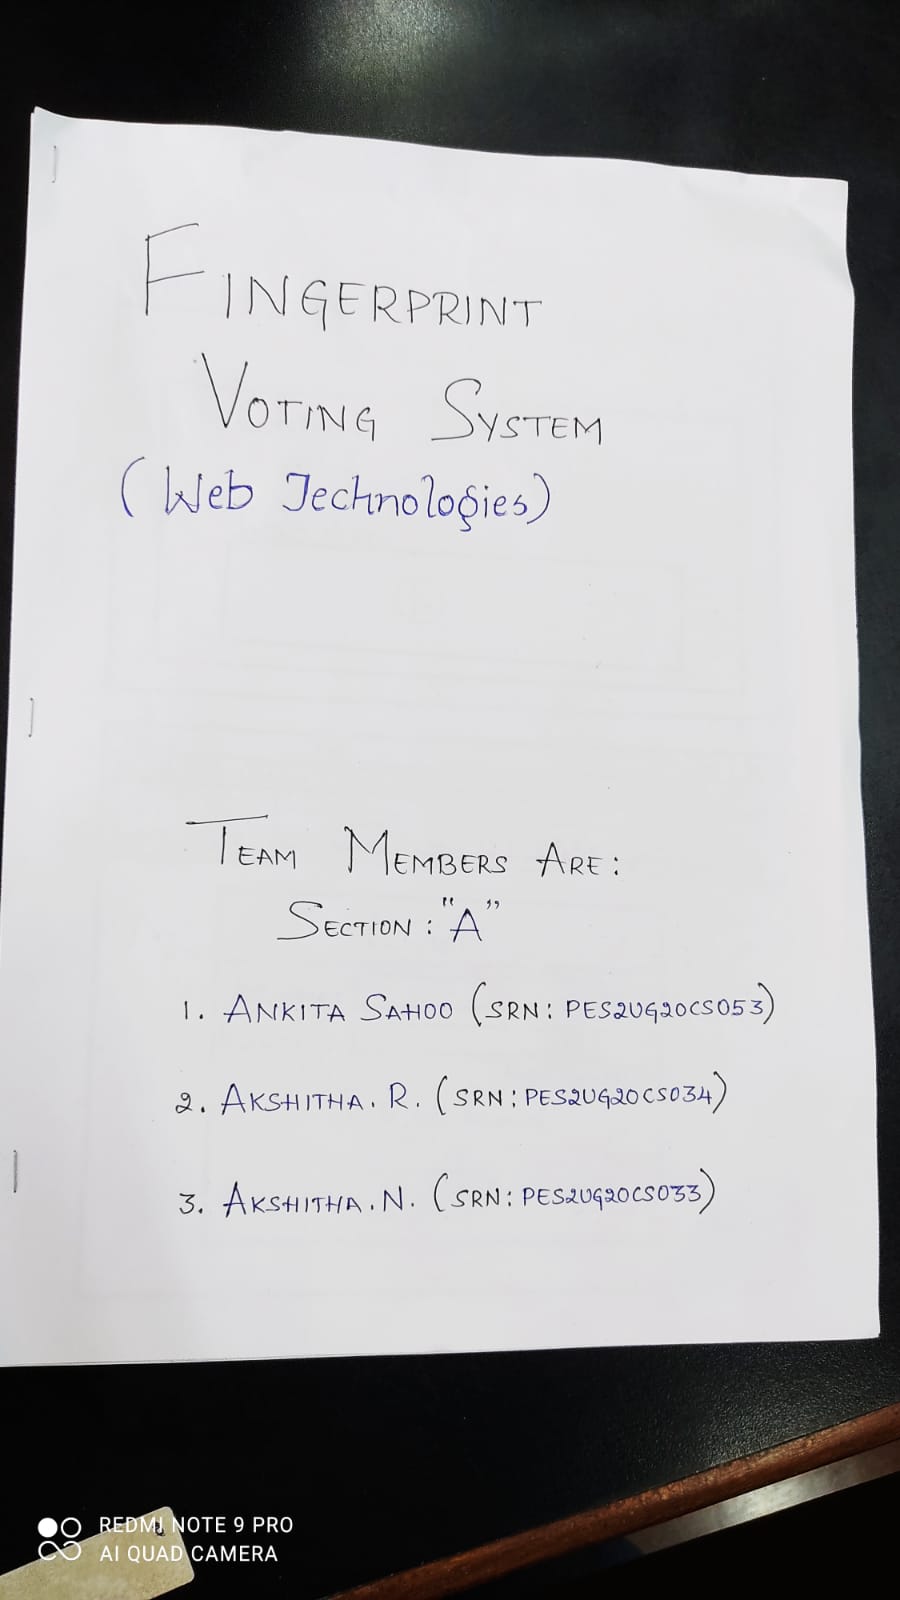 FINGERPRINT
VOTING SYSTEM
(Web Technologies)
TEAM MEMBERS ARE:
SECTION: "A"
1. ANKITA SAHOO (SRN: PES2UG20CS053)
2. AKSHITHA. R. (SRN: PES2UG20CS034)
3. AKSHITHA. N. (SRN: PES2UG20CS033)
REDMI NOTE 9 PRO
AI QUAD CAMERA